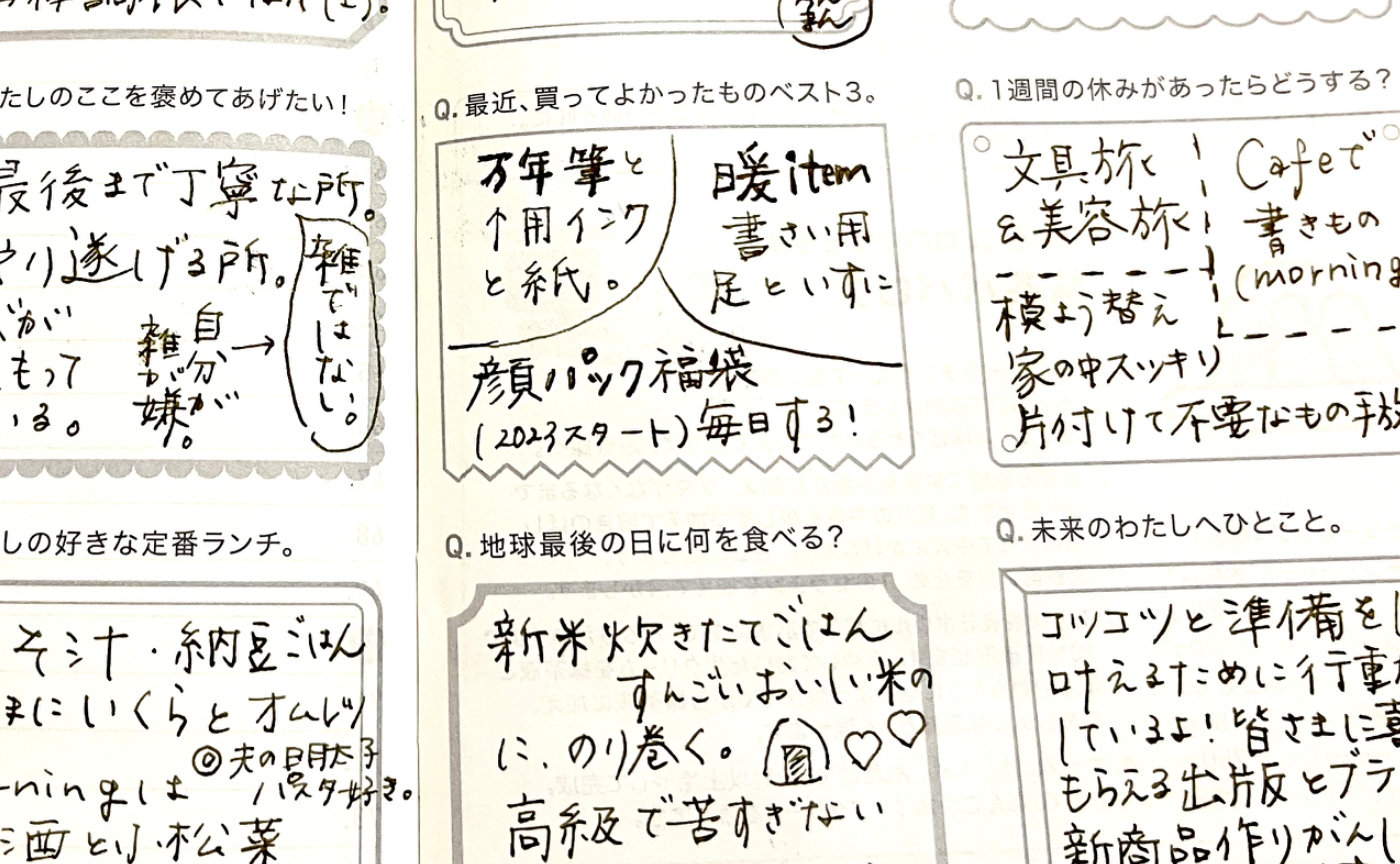 たしのここを褒めてあげたい!
最後まで丁寧な所。
やり遂げる所。
雑ではない。
自分が
雑が嫌。
→
もって
いる。
しの好きな定番ランチ。
そ汁・納豆ごはん
まにいくらとオムレツ
◎夫の明太子
パスタ好き。
ningは
酒と小松菜
Q. 最近、買ってよかったものベスト3。
万年筆と
↑用インク
と紙。
暖item
書さい用
足といすに
顔パック福袋
(2023スタート)毎日する!
Q. 地球最後の日に何を食べる?
新米炊きたてごはん
すんごいおいしい米の
に、のり巻く。♡♡
高級で苦すぎない
Q. 1週間の休みがあったらどうする?
文具旅
&美容旅
Cafeで
書きもの
(morning
模よう替え
家の中スッキリ
片付けて不要なもの手放
Q. 未来のわたしへひとこと。
コツコツと準備をし
叶えるために行動
しているよ!皆さまに喜
もらえる出版とブラ
新商品作りがんし